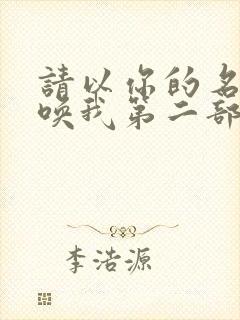 請以你的名
喚我第二部
李浩源